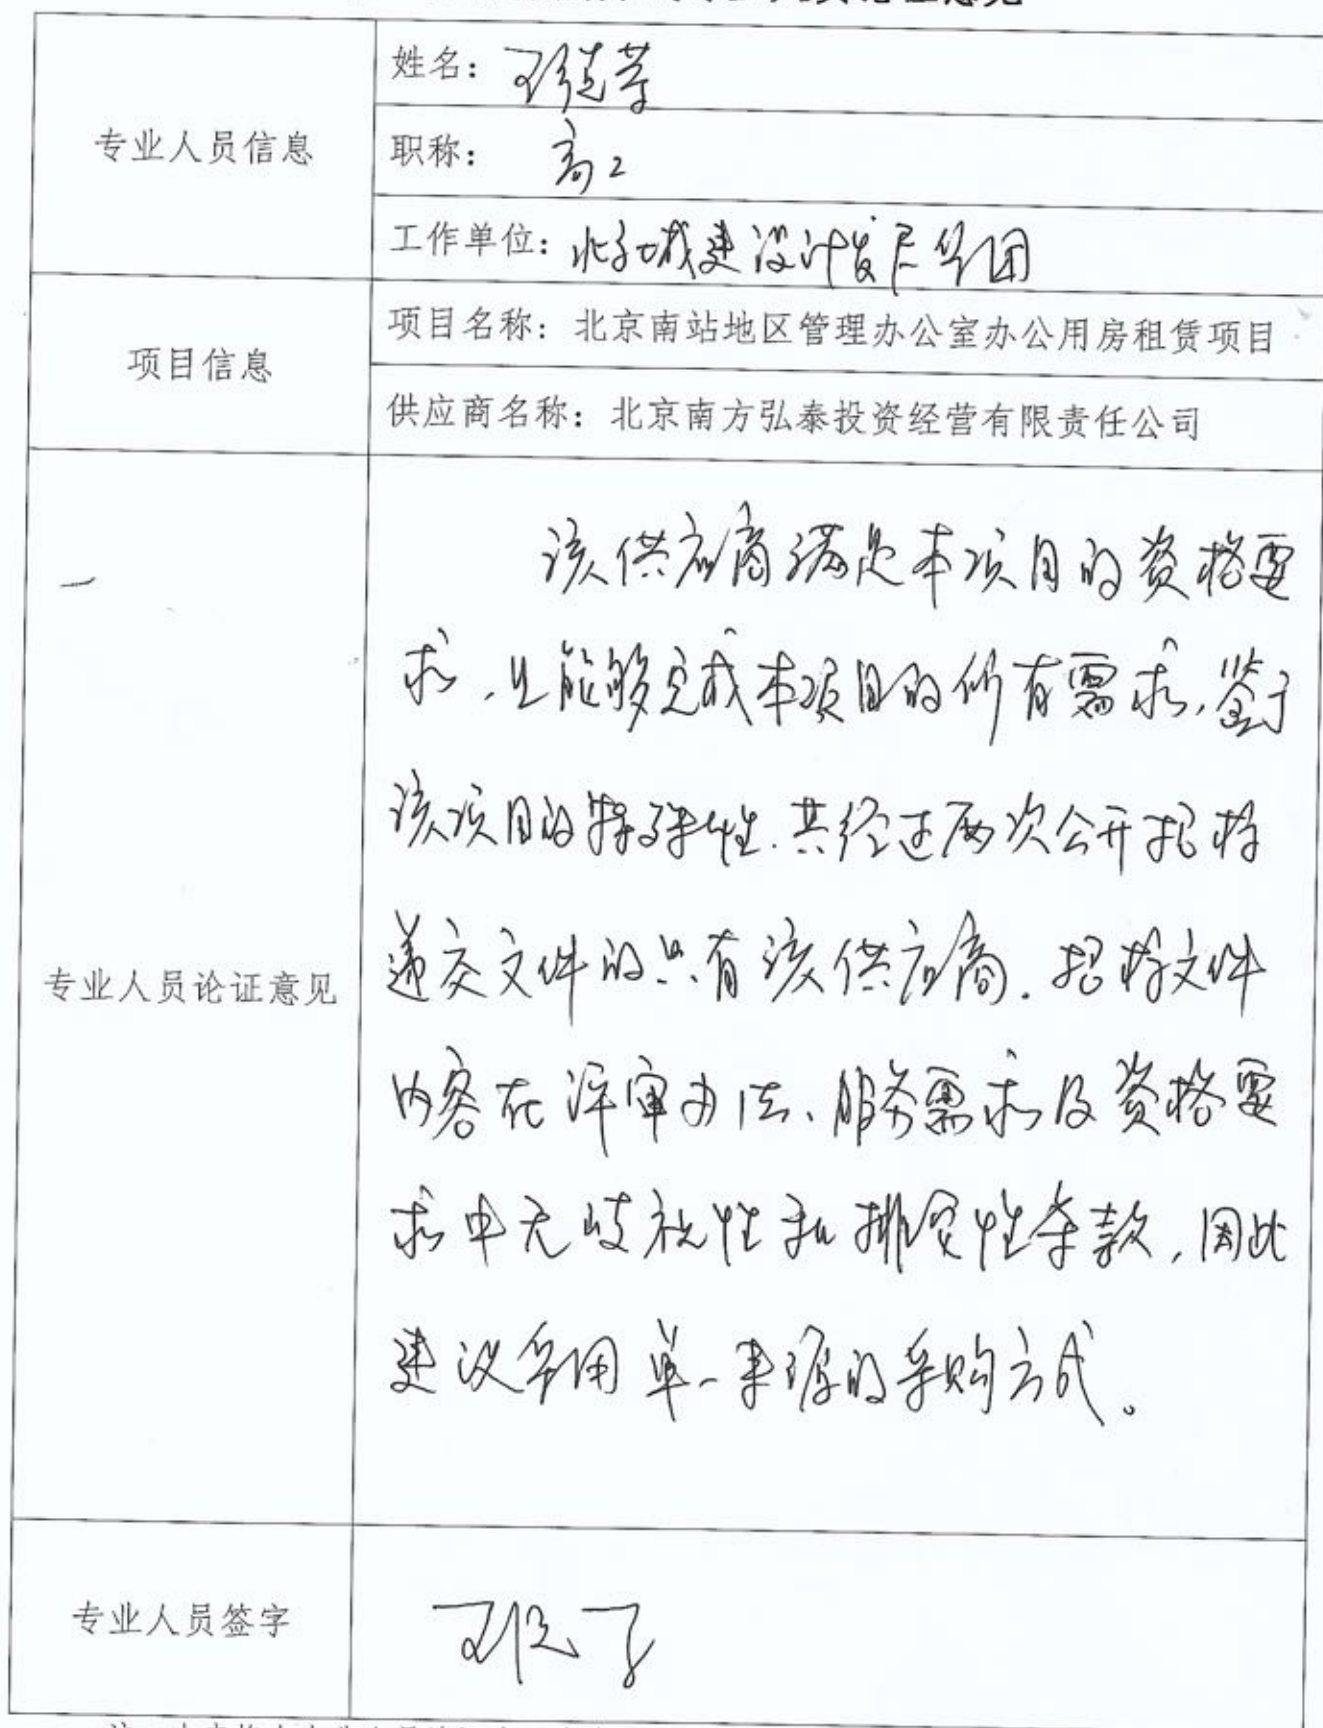 论证意见
专业人员信息
姓名：王
职称：高工
工作单位：北京城建设计发展集团
项目信息
项目名称：北京南站地区管理办公室办公用房租赁项目
供应商名称：北京南方弘泰投资经营有限责任公司
专业人员论证意见
该供应商满足本项目的资格要
求，且能够完成本项目的所有需求，鉴于
该项目的特殊性，其经过两次公开招标
递交文件的只有该供应商。招标文件
内容在评审办法、服务需求及资格要
求中无歧视性和排它性条款，因此
建议采用单一来源的采购方式。
专业人员签字
王